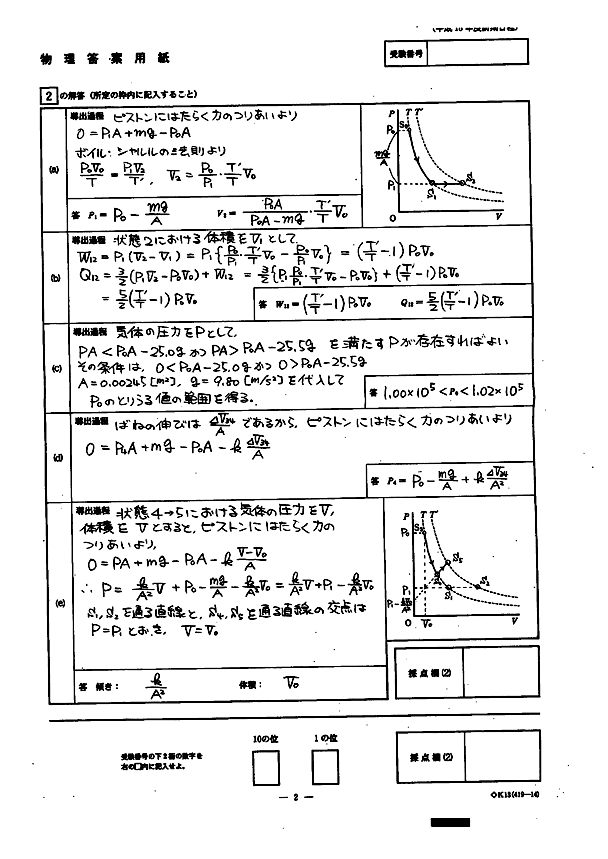 物理答案用紙
受験番号
2 の解答（所定の枠内に記入すること）
(a)
導出過程 ピストンにはたらく力のつりあいより
0=P₁A+mg-P₀A
ボイル・シャルルの法則より
P₀V₀/T = P₁V₂/T', V₂ = P₀/P₁・T'/T V₀
答 P₁= P₀ - mg/A V₂= P₀A/(P₀A-mg)・T'/T V₀
P T T'
P₀ S₀
mg/A
P₁ S₁ S₂
O V
(b)
導出過程 状態2における体積をV₂として
W₁₂=P₁(V₂-V₁)=P₁{P₀/P₁・T'/T V₀ - P₀/P₁ V₀} = (T'/T-1)P₀V₀
Q₁₂=3/2(P₁V₂-P₀V₀)+W₁₂ = 3/2{P₁P₀/P₁・T'/T V₀-P₀V₀}+(T'/T-1)P₀V₀
= 5/2(T'/T-1)P₀V₀
答 W₁₂=(T'/T-1)P₀V₀ Q₁₂=5/2(T'/T-1)P₀V₀
(c)
導出過程 気体の圧力をPとして,
PA<P₀A-25.0g かつ PA>P₀A-25.5g を満たすPが存在すればよい
その条件は, 0<P₀A-25.0g かつ 0>P₀A-25.5g
A=0.00245[m²], g=9.80[m/s²]を代入して
P₀のとりうる値の範囲を得る.
答 1.00×10⁵<P₀<1.02×10⁵
(d)
導出過程 ばねの伸びは ΔV₃₄/A であるから, ピストンにはたらく力のつりあいより
0=P₄A+mg-P₀A-k ΔV₃₄/A
答 P₄= P₀-mg/A+k ΔV₃₄/A²
(e)
導出過程 状態4→5における気体の圧力をP,
体積をVとすると, ピストンにはたらく力の
つりあいより,
0=PA+mg-P₀A-k (V-V₀)/A
∴ P= k/A² V+P₀-mg/A-k/A² V₀= k/A² V+P₁-k/A² V₀
S₁,S₂を通る直線と, S₄,S₅を通る直線の交点は
P=P₁とおき, V=V₀
答 傾き: k/A² 体積: V₀
P T T'
P₀
S₅
P₁ S₁ S₂
O V₀ V
採点欄(2)
10の位 1の位
受験番号の下2桁の数字を
右の□内に記入せよ。
採点欄(2)
— 2 —
◇K13(419—14)